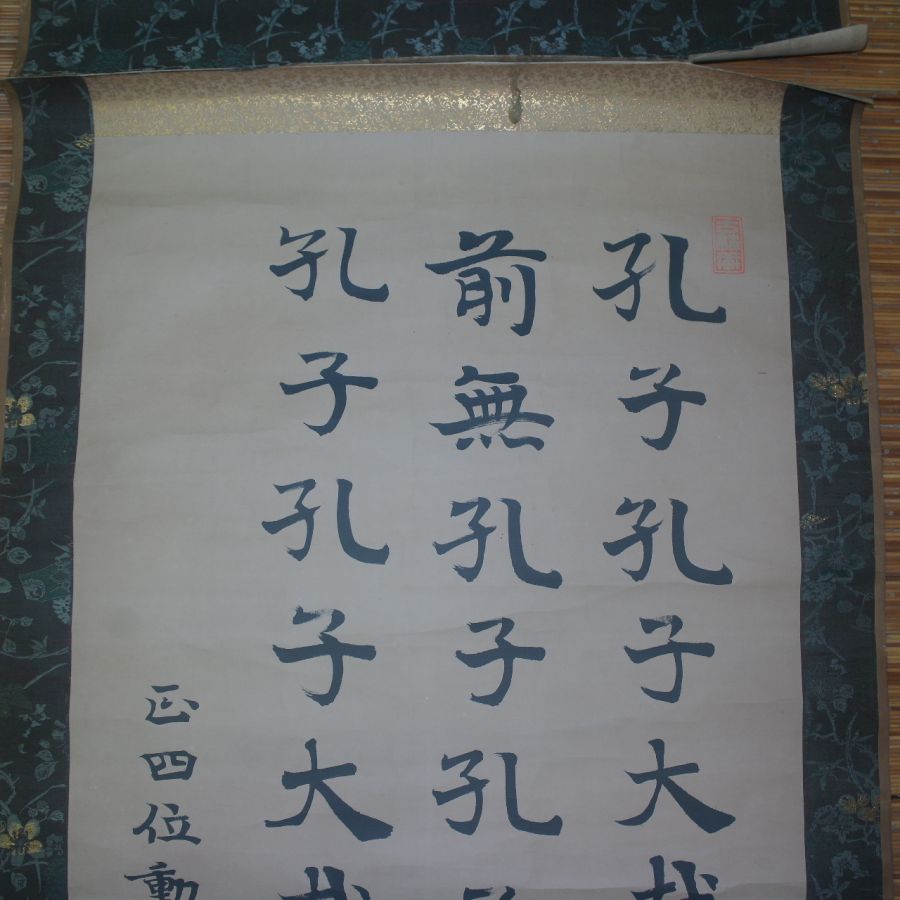 孔子孔子大哉
前無孔子孔
孔子孔子大哉
正四位勲